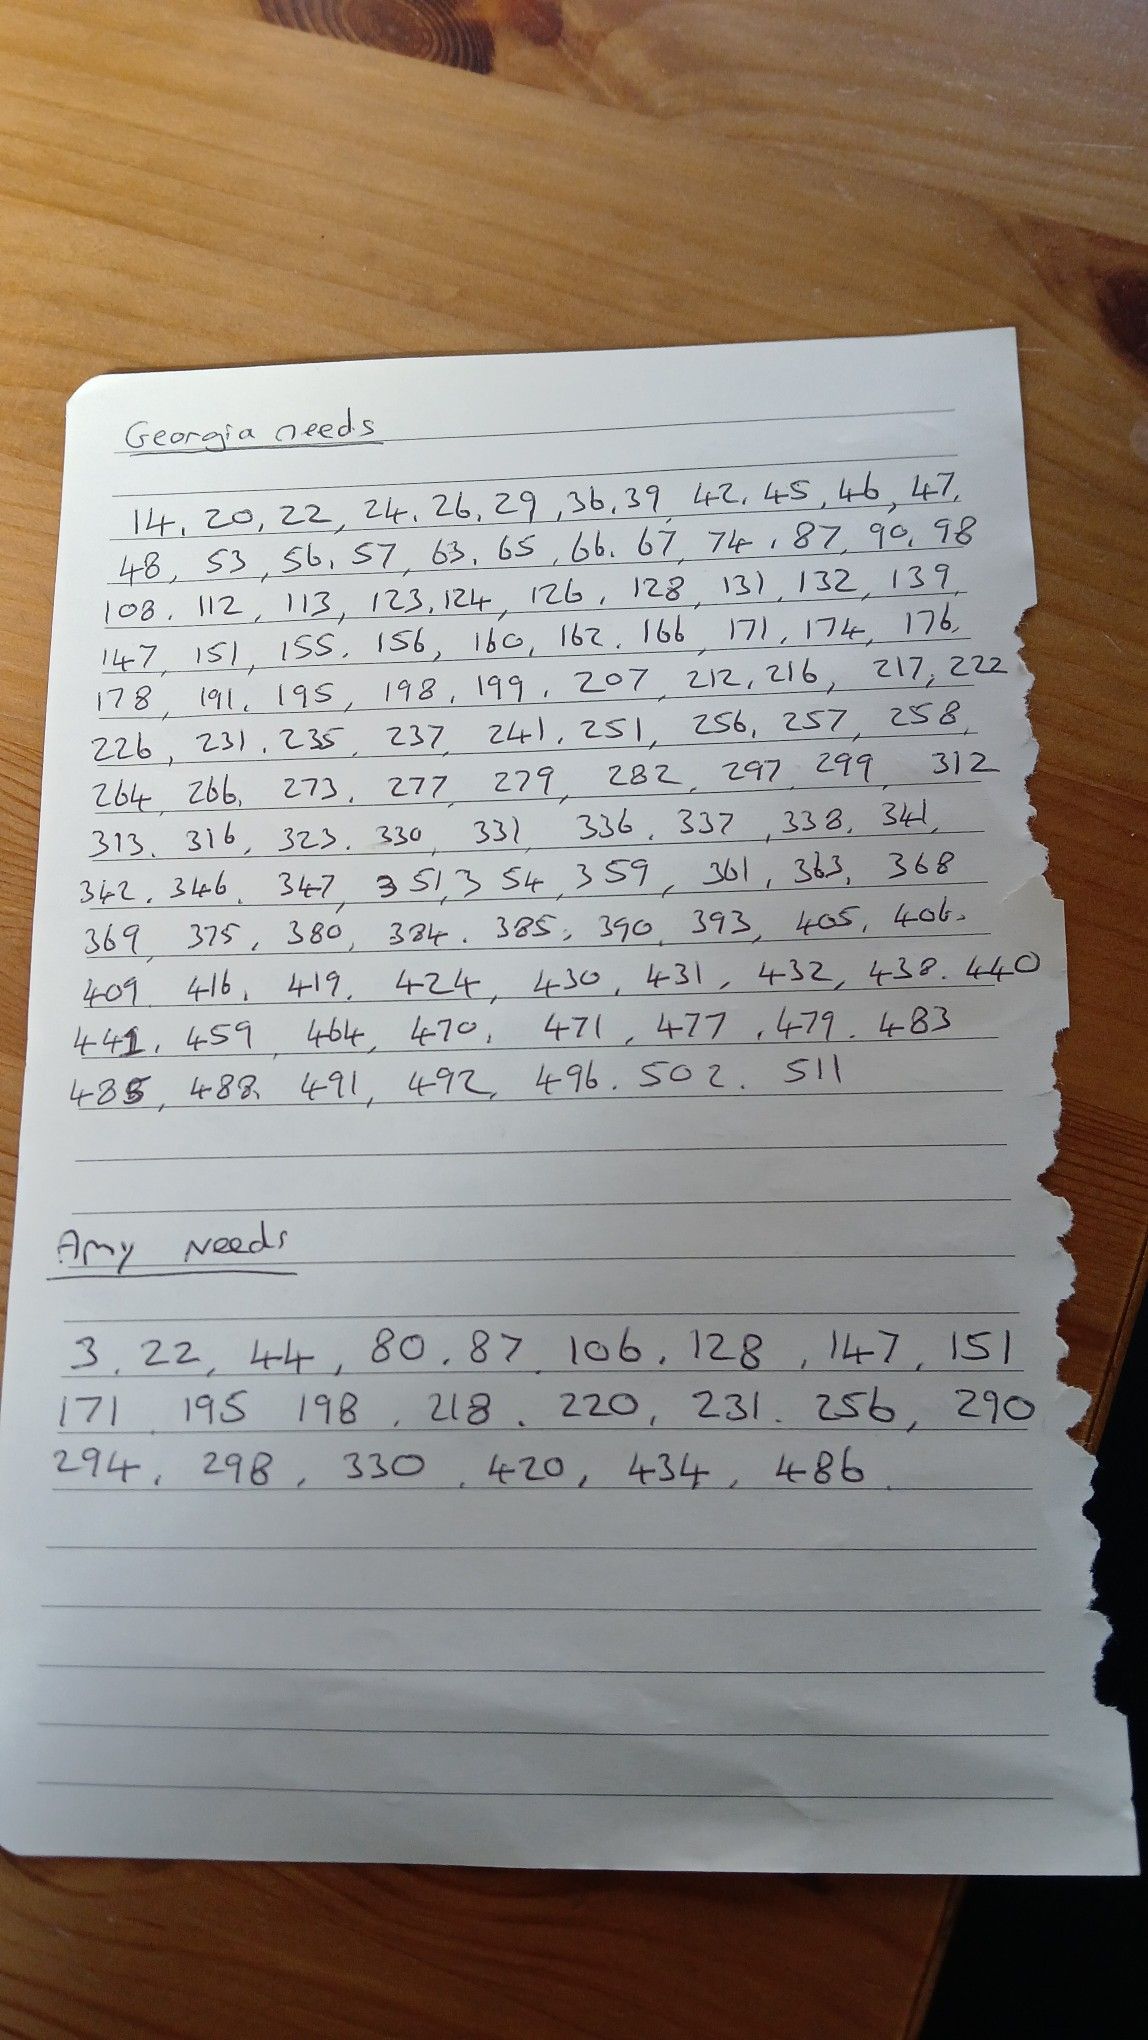 Georgia needs
14, 20, 22, 24, 26, 29, 36, 39, 42, 45, 46, 47,
48, 53, 56, 57, 63, 65, 66, 67, 74, 87, 90, 98
108, 112, 113, 123, 124, 126, 128, 131, 132, 139,
147, 151, 155, 156, 160, 162, 166, 171, 174, 176,
178, 191, 195, 198, 199, 207, 212, 216, 217, 222
226, 231, 235, 237, 241, 251, 256, 257, 258,
264, 266, 273, 277, 279, 282, 297, 299, 312
313, 316, 323, 330, 331, 336, 337, 338, 341,
342, 346, 347, 351, 354, 359, 361, 363, 368
369, 375, 380, 384, 385, 390, 393, 405, 406,
409, 416, 419, 424, 430, 431, 432, 438, 440
441, 459, 464, 470, 471, 477, 479, 483
485, 488, 491, 492, 496, 502, 511
Amy Needs
3, 22, 44, 80, 87, 106, 128, 147, 151
171, 195 198, 218, 220, 231, 256, 290
294, 298, 330, 420, 434, 486.